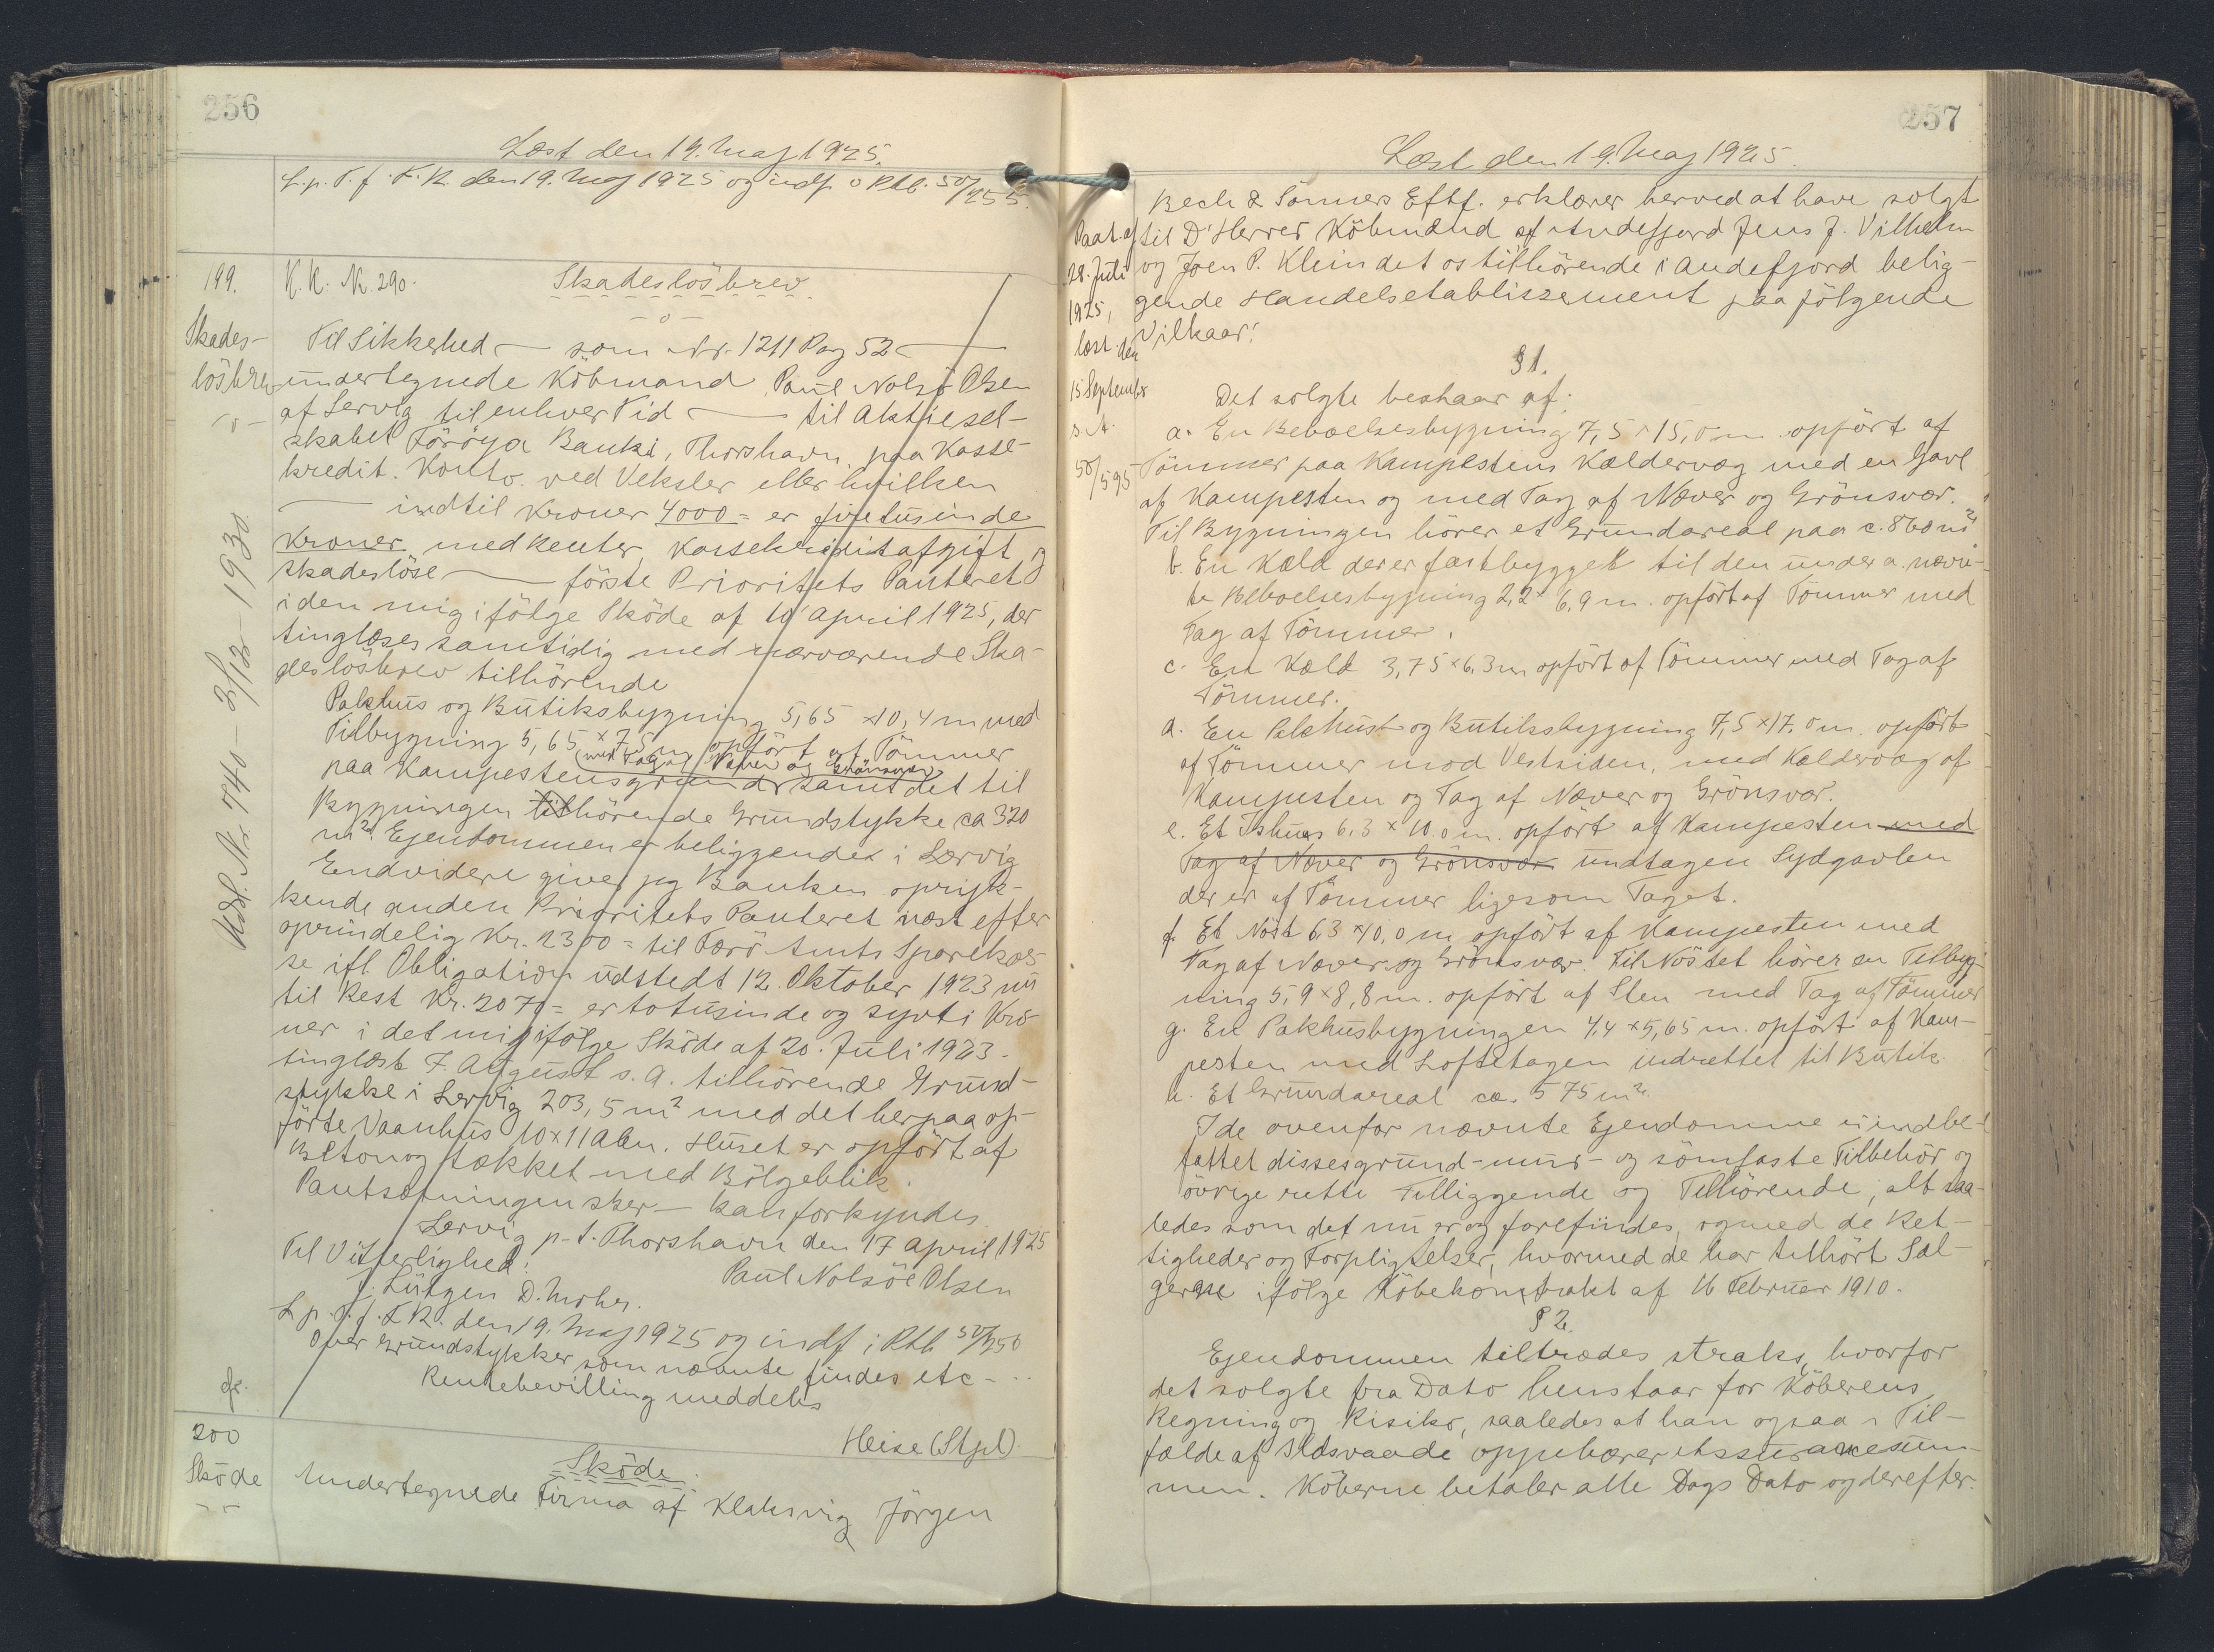 256
Læst den 19. Maj 1925.
L. p. T. f. F. R. den 19. Maj 1925 og indf. i Rtb. 50/255.
199.
K.K. Nr. 290.
Skadeslösbrev
Skades-
lösbrev
Til Sikkerhed — som Nr. 1211 Pag 52 —
undertegnede Köbmand Paul Nolsö Olsen
af Lervig til enhver Tid — til Aktiesel-
skabet Föröya Banki, Thorshavn, paa Kasse-
kredit. Konto. ved Veksler eller hvilken
— indtil Kroner 4000 = er firetusinde
Kroner med Renter, Kassekreditafgift og
skadeslöse — förste Prioritets Panteret
i den mig ifölge Sköde af 10 April 1925, der
tinglæses samtidig med nærværende Ska-
deslösbrev tilhörende
Pakhus og Butiksbygning 5,65 × 10,4 m med
Tilbygning 5,65 × 7,5 m opfört af Tömmer
(med Tag af Næver og Grönsvær)
paa Kampestensgrund samt det til
Bygningen tilhörende Grundstykke ca 320
m². Ejendommen er beliggende i Lervig
Endvidere giver jeg Banken opryk-
kende anden Prioritets Panteret næst efter
oprindelig Kr. 2300 = til Færö Amts Sparekas-
se ifl Obligation udstedt 12. Oktober 1923 nu
til Rest Kr. 2070 = er totusinde og syvti Kro-
ner i det mig ifölge Sköde af 20. Juli 1923
tinglæst 7. August s. A. tilhörende Grund-
stykke i Lervig 203,5 m² med det herpaa op-
förte Vaanhus 10 × 11 Alen. Huset er opfört af
Beton og tækket med Bölgeblik.
Pantsætningen sker — kan forkyndes
Lervig p. t. Thorshavn den 17 April 1925
Til Vitterlighed:
Paul Nolsöe Olsen
J. Lützen D. Mohr.
L. p. T. f. F. R. den 19. Maj 1925 og indf. i Rtb 50/256
Over Grundstykker som nævnte findes etc - . .
Rentebevilling meddeles
Heise (Stpl)
Udsl. Nr. 740 - 2/12 - 1930.
200
Sköde
Sköde
Undertegnede Firma af Klaksvig Jörgen
257
Læst den 19. Maj 1925.
Bech & Sönners Eftf. erklærer herved at have solgt
til D'Herrer Köbmænd af Andefjord Jens J. Vilhelm
og Joen P. Klein det os tilhörende i Andefjord belig-
gende Handelsetablissement paa fölgende
Vilkaar:
Paat. af
28. Juli
1925,
læst den
15 September
s. A.
50/595
§ 1.
Det solgte bestaar af:
a. En Beboelsesbygning 7,5 × 15,0 m. opfört af
Tömmer paa Kampestens Kældervæg med en Gavl
af Kampesten og med Tag af Næver og Grönsvær.
Til Bygningen hörer et Grundareal paa c. 860 m²
b. En Kæld der er fastbygget til den under a. nævn-
te Beboelsesbygning 2,2 × 6,9 m. opfört af Tömmer med
Tag af Tömmer.
c. En Kæld 3,75 × 6,3 m opfört af Tömmer med Tag af
Tömmer.
d. En Pakhus- og Butiksbygning 7,5 × 17,0 m. opfört
af Tömmer mod Vestsiden, med Kældervæg af
Kampesten og Tag af Næver og Grönsvær.
e. Et Ishus 6,3 × 10,0 m. opfört af Kampesten med
Tag af Næver og Grönsvær undtagen Sydgavlen
der er af Tömmer ligesom Taget.
f. Et Nöst 6,3 × 10,0 m opfört af Kampesten med
Tag af Næver og Grönsvær. Til Nöstet hörer en Tilbyg-
ning 5,9 × 8,8 m. opfört af Sten med Tag af Tömmer
g. En Pakhusbygningen 4,4 × 5,65 m. opfört af Kam-
pesten med Loftetagen indrettet til Butik.
h. Et Grundareal ca. 575 m².
I de ovenfor nævnte Ejendomme er indbe-
fattet disses grund- mur- og sömfaste Tilbehör og
övrige rette Tilliggende og Tilhörende, alt saa-
ledes som det nu er og forefindes, og med de Ret-
tigheder og Forpligtelser, hvormed de har tilhört Sæl-
gerne ifölge Köbekontrakt af 16 Februar 1910.
§ 2.
Ejendommen tiltrædes straks, hvorfor
det solgte fra Dato henstaar for Köberens
Regning og Risiko, saaledes at han ogsaa i Til-
fælde af Ildsvaade oppebærer Assurancesum-
men. Köberne betaler alle Dags Dato og derefter